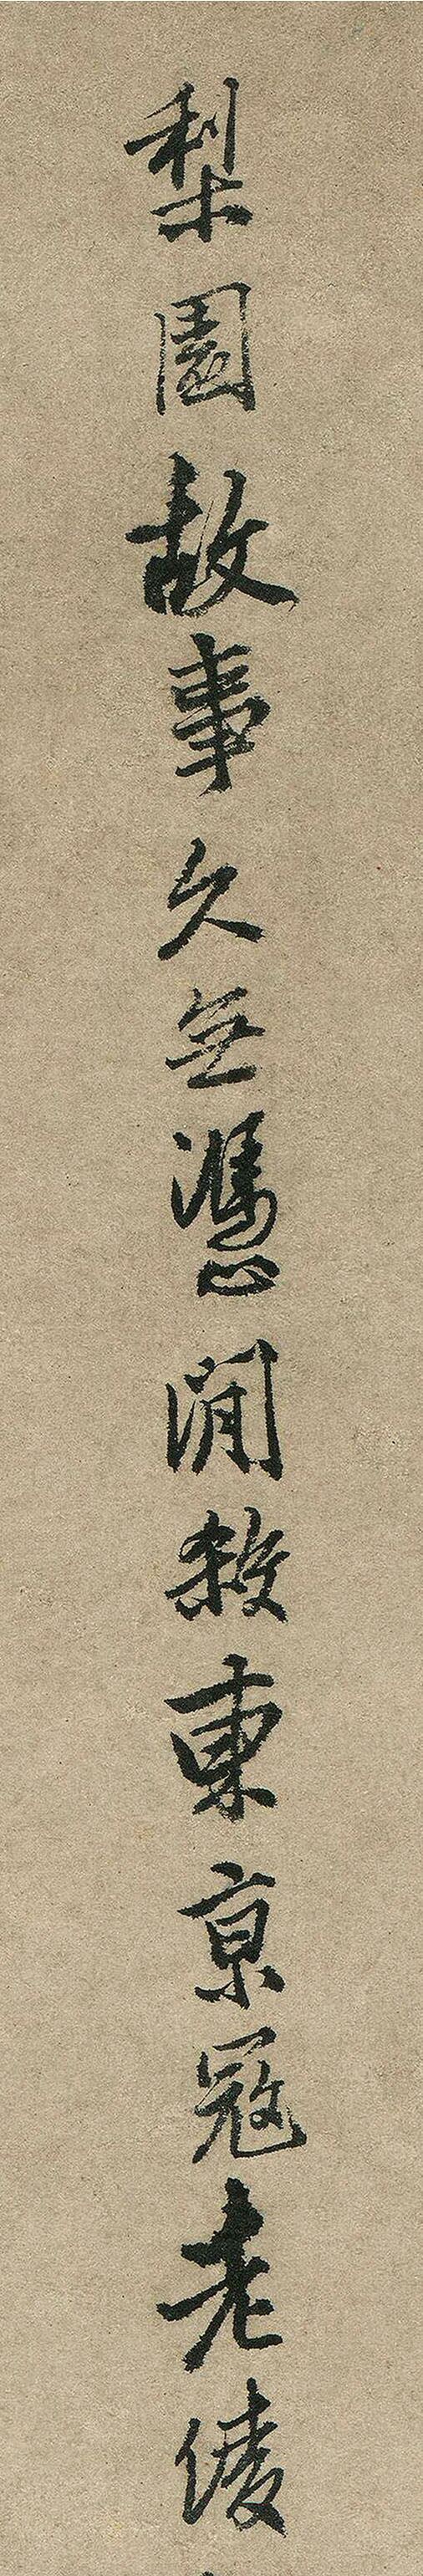 梨園故事久無憑閒殺東京冦老倰